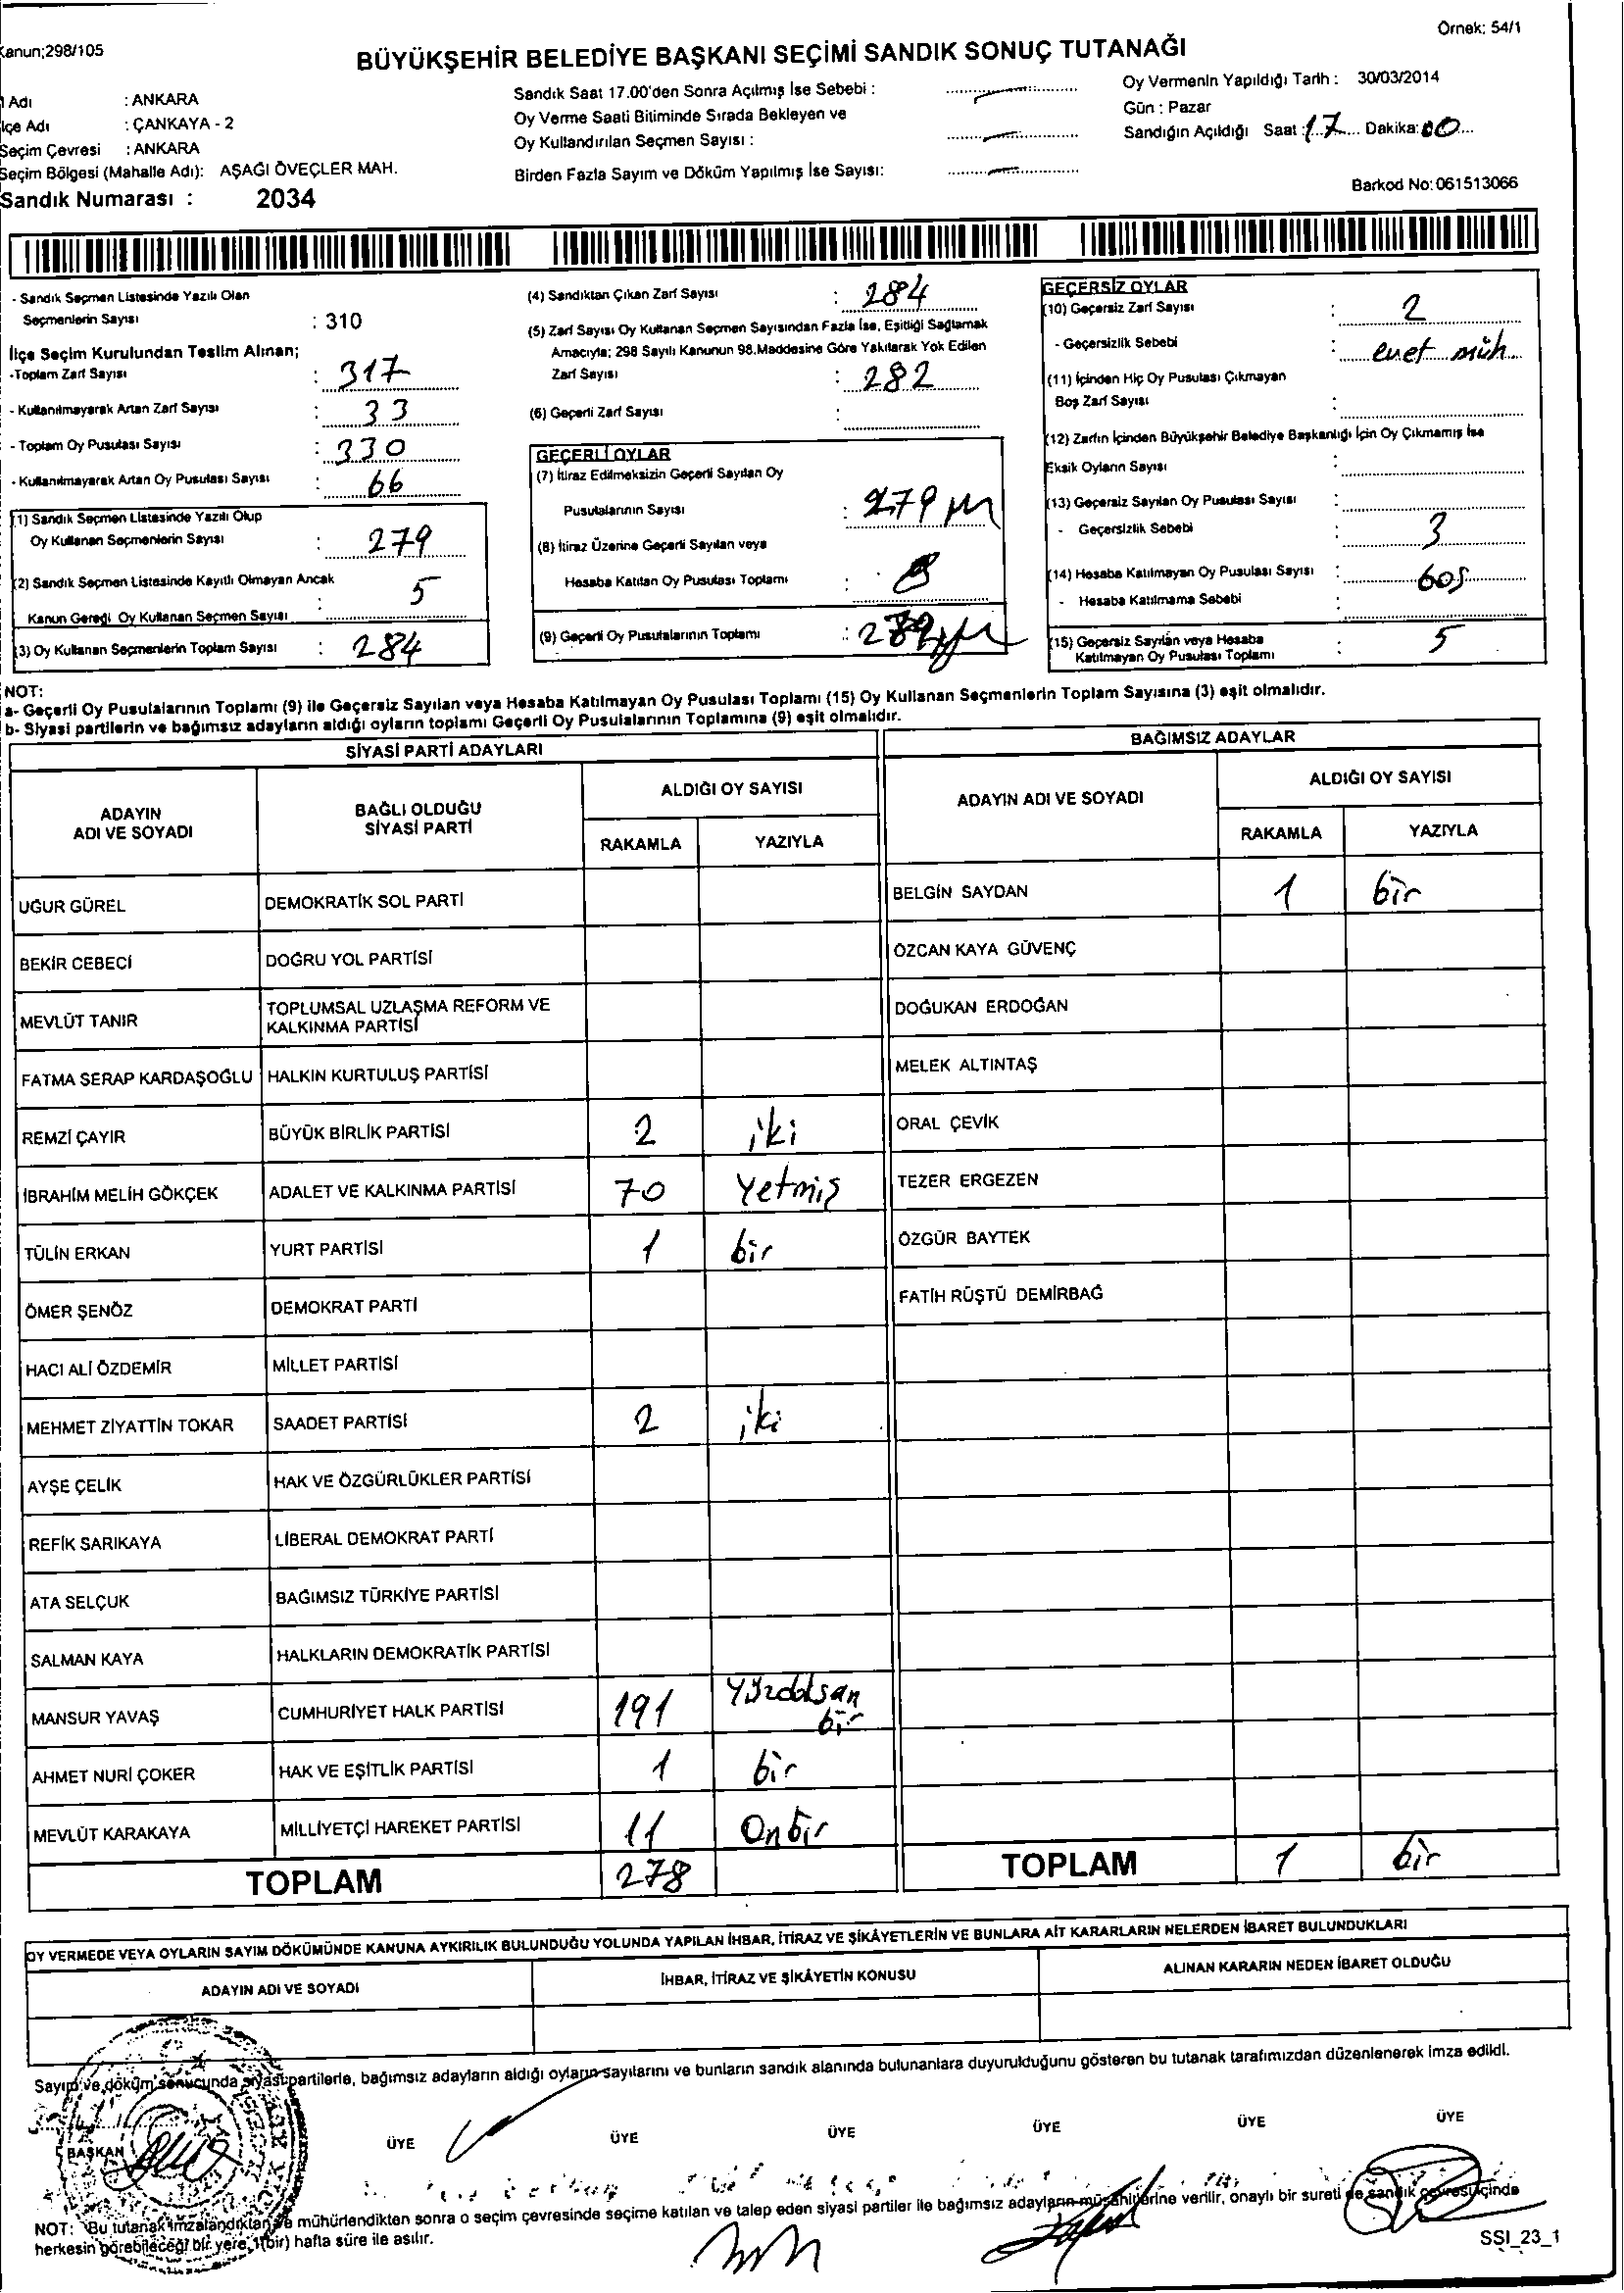 Kanun;298/105
Örnek: 54/1
BÜYÜKŞEHİR BELEDİYE BAŞKANI SEÇİMİ SANDIK SONUÇ TUTANAĞI
Adı : ANKARA
İlçe Adı : ÇANKAYA - 2
Seçim Çevresi : ANKARA
Seçim Bölgesi (Mahalle Adı): AŞAĞI ÖVEÇLER MAH.
Sandık Numarası : 2034
Sandık Saat 17.00'den Sonra Açılmış İse Sebebi :
Oy Verme Saati Bitiminde Sırada Bekleyen ve
Oy Kullandırılan Seçmen Sayısı :
Birden Fazla Sayım ve Döküm Yapılmış İse Sayısı:
Oy Vermenin Yapıldığı Tarih : 30/03/2014
Gün : Pazar
Sandığın Açıldığı Saat : 17 Dakika: 00
Barkod No: 061513066
- Sandık Seçmen Listesinde Yazılı Olan
Seçmenlerin Sayısı : 310
İlçe Seçim Kurulundan Teslim Alınan;
-Toplam Zarf Sayısı : 317
- Kullanılmayarak Artan Zarf Sayısı : 33
- Toplam Oy Pusulası Sayısı : 330
- Kullanılmayarak Artan Oy Pusulası Sayısı : 66
(1) Sandık Seçmen Listesinde Yazılı Olup
Oy Kullanan Seçmenlerin Sayısı : 279
(2) Sandık Seçmen Listesinde Kayıtlı Olmayan Ancak
Kanun Gereği Oy Kullanan Seçmen Sayısı : 5
(3) Oy Kullanan Seçmenlerin Toplam Sayısı : 284
(4) Sandıktan Çıkan Zarf Sayısı : 284
(5) Zarf Sayısı Oy Kullanan Seçmen Sayısından Fazla İse, Eşitliği Sağlamak
Amacıyla; 298 Sayılı Kanunun 98.Maddesine Göre Yakılarak Yok Edilen
Zarf Sayısı : 282
(6) Geçerli Zarf Sayısı :
GEÇERLİ OYLAR
(7) İtiraz Edilmeksizin Geçerli Sayılan Oy
Pusulalarının Sayısı : 279
(8) İtiraz Üzerine Geçerli Sayılan veya
Hesaba Katılan Oy Pusulası Toplamı :
(9) Geçerli Oy Pusulalarının Toplamı :
GEÇERSİZ OYLAR
(10) Geçersiz Zarf Sayısı : 2
- Geçersizlik Sebebi : evet müh.
(11) İçinden Hiç Oy Pusulası Çıkmayan
Boş Zarf Sayısı :
(12) Zarfın İçinden Büyükşehir Belediye Başkanlığı İçin Oy Çıkmamış İse
Eksik Oyların Sayısı :
(13) Geçersiz Sayılan Oy Pusulası Sayısı :
- Geçersizlik Sebebi : 3
(14) Hesaba Katılmayan Oy Pusulası Sayısı : boş
- Hesaba Katılmama Sebebi :
(15) Geçersiz Sayılan veya Hesaba
Katılmayan Oy Pusulası Toplamı : 5
NOT:
a- Geçerli Oy Pusulalarının Toplamı (9) ile Geçersiz Sayılan veya Hesaba Katılmayan Oy Pusulası Toplamı (15) Oy Kullanan Seçmenlerin Toplam Sayısına (3) eşit olmalıdır.
b- Siyasi partilerin ve bağımsız adayların aldığı oyların toplamı Geçerli Oy Pusulalarının Toplamına (9) eşit olmalıdır.
SİYASİ PARTİ ADAYLARI
ADAYIN
ADI VE SOYADI
BAĞLI OLDUĞU
SİYASİ PARTİ
ALDIĞI OY SAYISI
RAKAMLA YAZIYLA
UĞUR GÜREL DEMOKRATİK SOL PARTİ
BEKİR CEBECİ DOĞRU YOL PARTİSİ
MEVLÜT TANIR TOPLUMSAL UZLAŞMA REFORM VE
KALKINMA PARTİSİ
FATMA SERAP KARDAŞOĞLU HALKIN KURTULUŞ PARTİSİ
REMZİ ÇAYIR BÜYÜK BİRLİK PARTİSİ 2 iki
İBRAHİM MELİH GÖKÇEK ADALET VE KALKINMA PARTİSİ 70 Yetmiş
TÜLİN ERKAN YURT PARTİSİ 1 bir
ÖMER ŞENÖZ DEMOKRAT PARTİ
HACI ALİ ÖZDEMİR MİLLET PARTİSİ
MEHMET ZİYATTİN TOKAR SAADET PARTİSİ 2 iki
AYŞE ÇELİK HAK VE ÖZGÜRLÜKLER PARTİSİ
REFİK SARIKAYA LİBERAL DEMOKRAT PARTİ
ATA SELÇUK BAĞIMSIZ TÜRKİYE PARTİSİ
SALMAN KAYA HALKLARIN DEMOKRATİK PARTİSİ
MANSUR YAVAŞ CUMHURİYET HALK PARTİSİ 191 Yüzdoksan
bir
AHMET NURİ ÇOKER HAK VE EŞİTLİK PARTİSİ 1 bir
MEVLÜT KARAKAYA MİLLİYETÇİ HAREKET PARTİSİ 11 Onbir
TOPLAM 278
BAĞIMSIZ ADAYLAR
ADAYIN ADI VE SOYADI
ALDIĞI OY SAYISI
RAKAMLA YAZIYLA
BELGİN SAYDAN 1 bir
ÖZCAN KAYA GÜVENÇ
DOĞUKAN ERDOĞAN
MELEK ALTINTAŞ
ORAL ÇEVİK
TEZER ERGEZEN
ÖZGÜR BAYTEK
FATİH RÜŞTÜ DEMİRBAĞ
TOPLAM 1 bir
OY VERMEDE VEYA OYLARIN SAYIM DÖKÜMÜNDE KANUNA AYKIRILIK BULUNDUĞU YOLUNDA YAPILAN İHBAR, İTİRAZ VE ŞİKÂYETLERİN VE BUNLARA AİT KARARLARIN NELERDEN İBARET BULUNDUKLARI
ADAYIN ADI VE SOYADI
İHBAR, İTİRAZ VE ŞİKÂYETİN KONUSU
ALINAN KARARIN NEDEN İBARET OLDUĞU
Sayım ve döküm sonucunda siyasi partilerle, bağımsız adayların aldığı oyların sayılarını ve bunların sandık alanında bulunanlara duyurulduğunu gösteren bu tutanak tarafımızdan düzenlenerek imza edildi.
BAŞKAN ÜYE ÜYE ÜYE ÜYE ÜYE ÜYE
NOT: Bu tutanak imzalandıktan ve mühürlendikten sonra o seçim çevresinde seçime katılan ve talep eden siyasi partiler ile bağımsız adayların müşahitlerine verilir, onaylı bir sureti de sandık çevresi içinde
herkesin görebileceği bir yere 1(bir) hafta süre ile asılır.
SSI_23_1